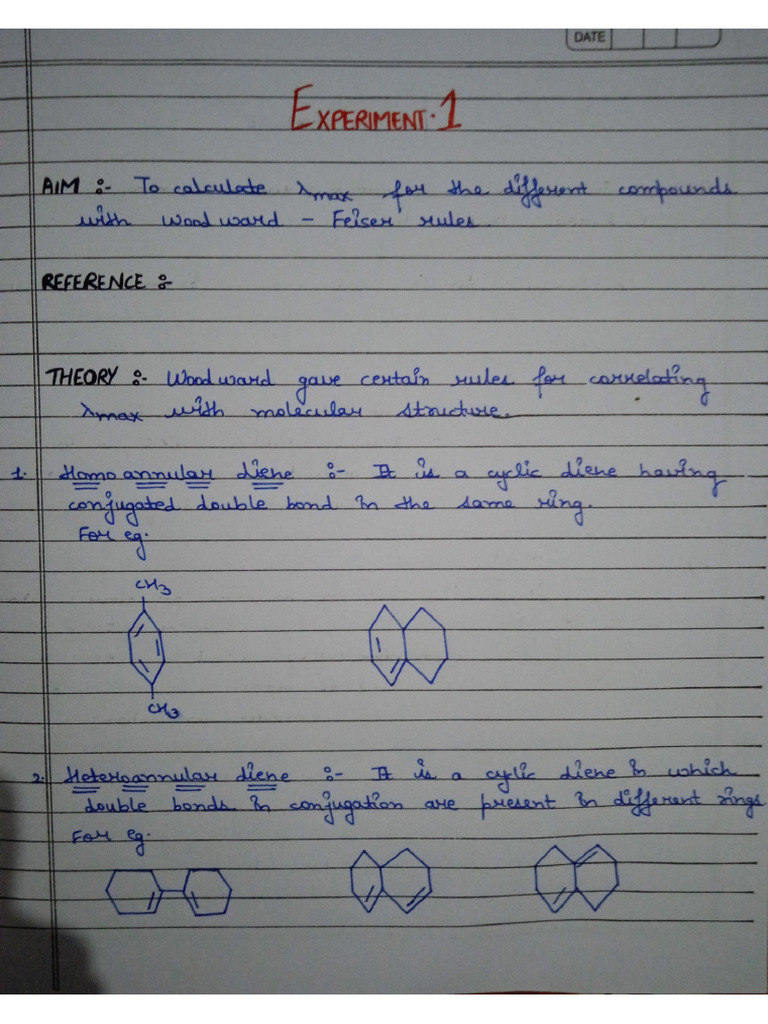 DATE
EXPERIMENT.1
AIM :- To calculate λmax for the different compounds
with Woodward - Feiser rules.
REFERENCE :-
THEORY :- Woodward gave certain rules for correlating
λmax with molecular structure.
1. Homoannular diene :- It is a cyclic diene having
conjugated double bond in the same ring.
For eg.
CH3
CH3
2. Heteroannular diene :- It is a cyclic diene in which
double bonds in conjugation are present in different rings
For eg.